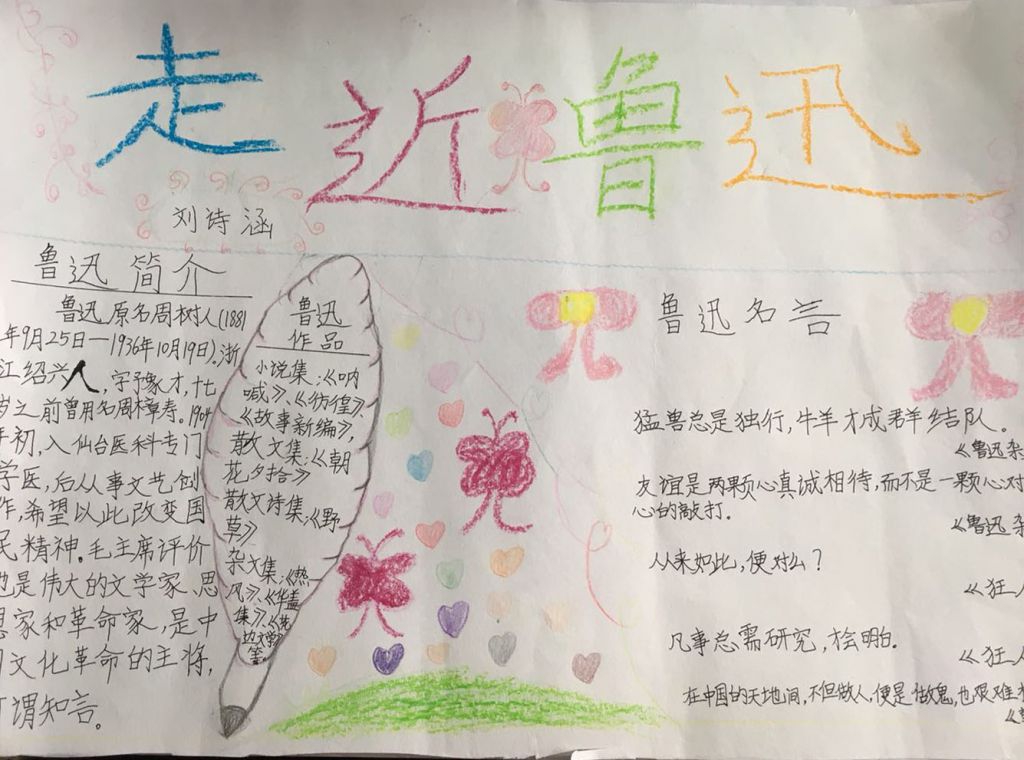 走近鲁迅
刘诗涵
鲁迅简介
鲁迅原名周树人(1881
年9月25日—1936年10月19日).浙
江绍兴人,字豫才,十七
岁之前曾用名周樟寿。1904
年初,入仙台医科专门
学医,后从事文艺创
作,希望以此改变国
民精神。毛主席评价
他是伟大的文学家、思
想家和革命家,是中
国文化革命的主将,
可谓知言。
鲁迅
作品
小说集:《呐
喊》、《彷徨》、
《故事新编》,
散文集:《朝
花夕拾》
散文诗集:《野
草》
杂文集:《热
风》、《华盖
集》、《
等
鲁迅名言
猛兽总是独行,牛羊才成群结队。
《鲁迅杂
友谊是两颗心真诚相待,而不是一颗心对
心的敲打.
《鲁迅杂
从来如此,便对么?
《狂人
凡事总需研究,才会明白.
《狂人
在中国的天地间,不但做人,便是做鬼,也艰难